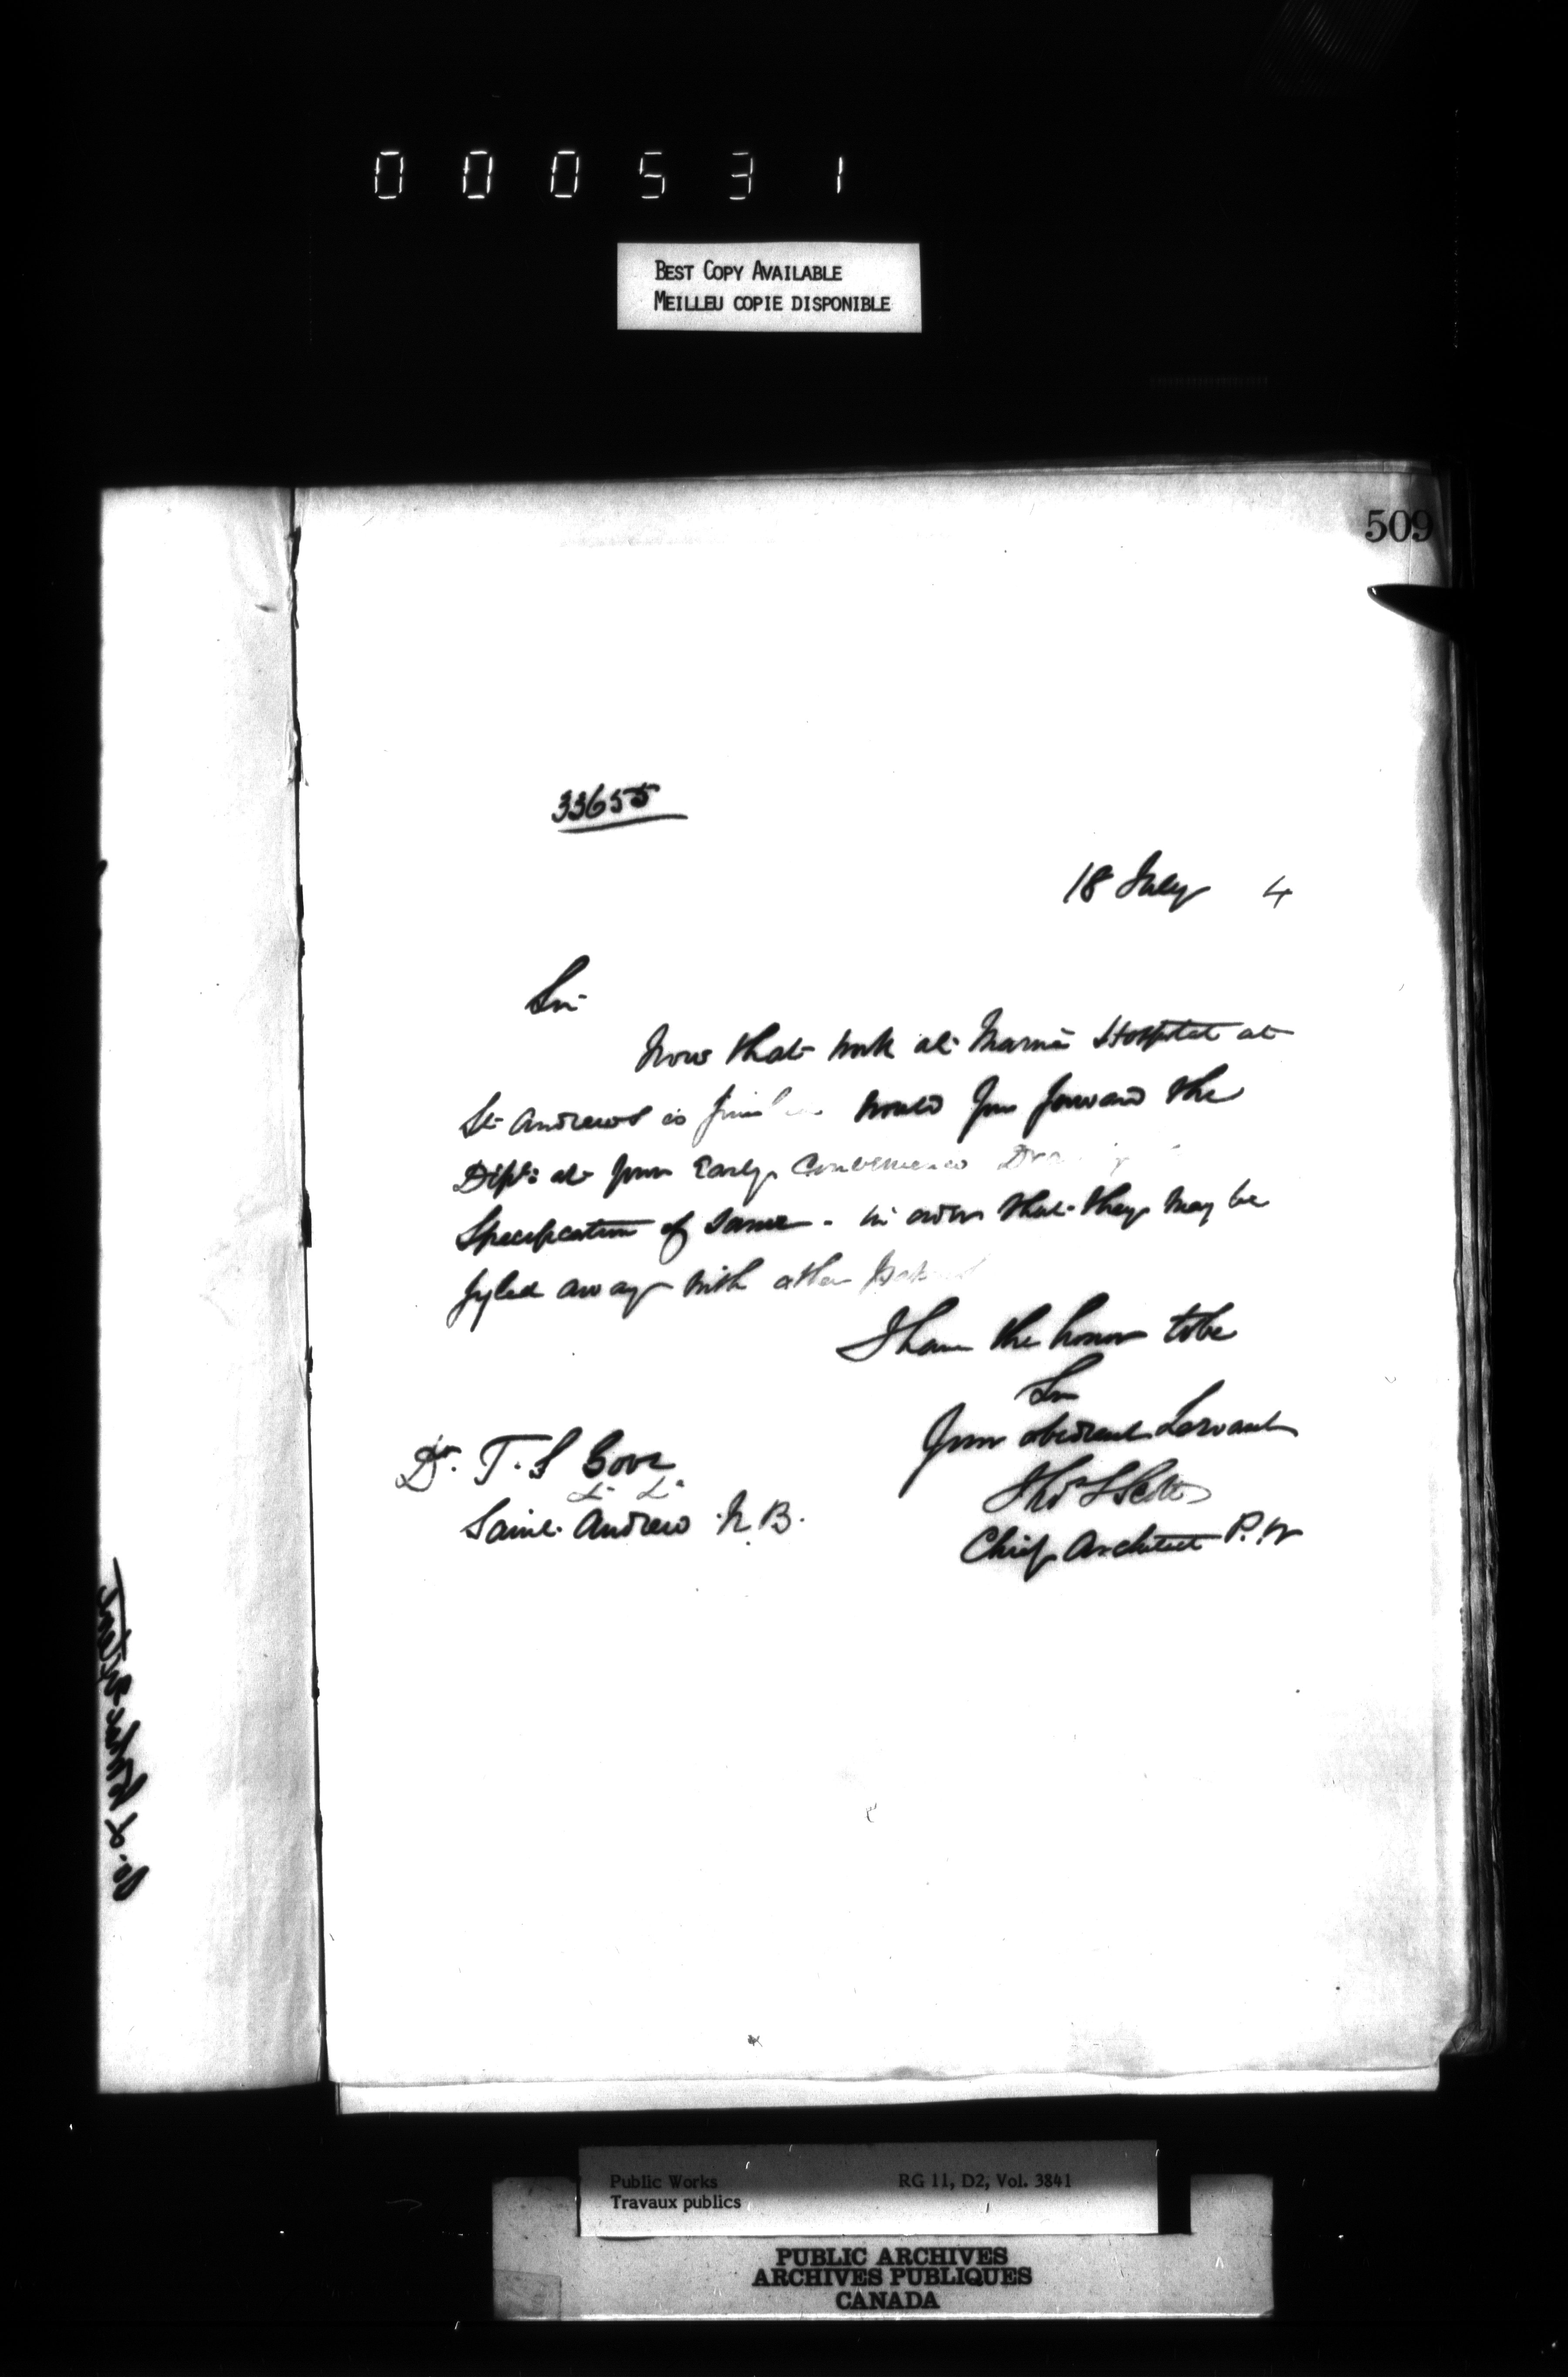 000531
BEST COPY AVAILABLE
MEILLEU COPIE DISPONIBLE
509
33655
18 July 4
Sir
Now that work at Marine Hospital at
St Andrews is would you forward the
Dept: at your Early Convenience
Specification of Same - in order that they may be
fyled away with other
I have the honor to be
Sir
Your obedient Servant
Thos S Scott
Chief Architect P.W
Dr. T. S Gove
Saint Andrew N.B.
Public Works RG 11, D2, Vol. 3841
Travaux publics
PUBLIC ARCHIVES
ARCHIVES PUBLIQUES
CANADA